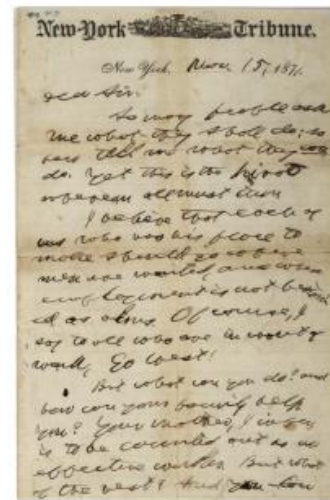 New-York Tribune.
New York, Nov 15, 1871.
Dear Sir:
So many people ask
me what they shall do; so
few tell me what they can
do. Yet this is the pivot
wherein all must turn
I believe that each of
us who has his place to
make should go where
men are wanted, and where
employment is not bestow
ed as alms. Of course, I
say to all who are in want of
work, Go West!
But what can you do? and
how can your family help
you? Your mother, I infer,
is to be counted out as an
effective worker. But what
of the rest? And you—how